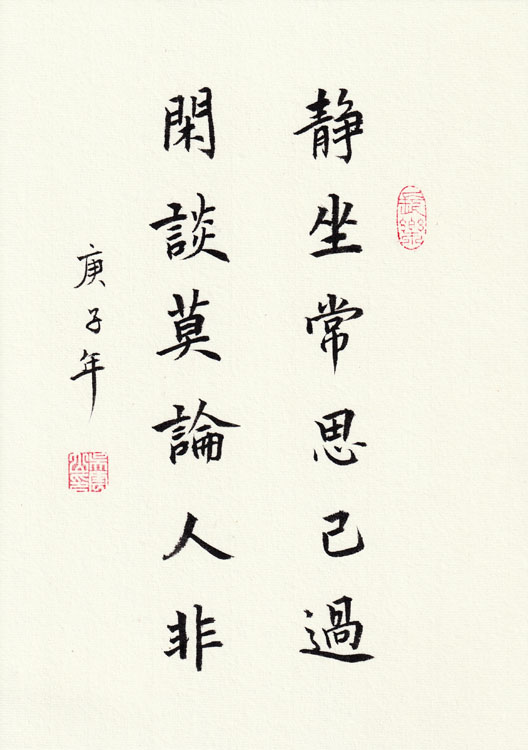 静坐常思己過
閑談莫論人非
庚子年
長樂